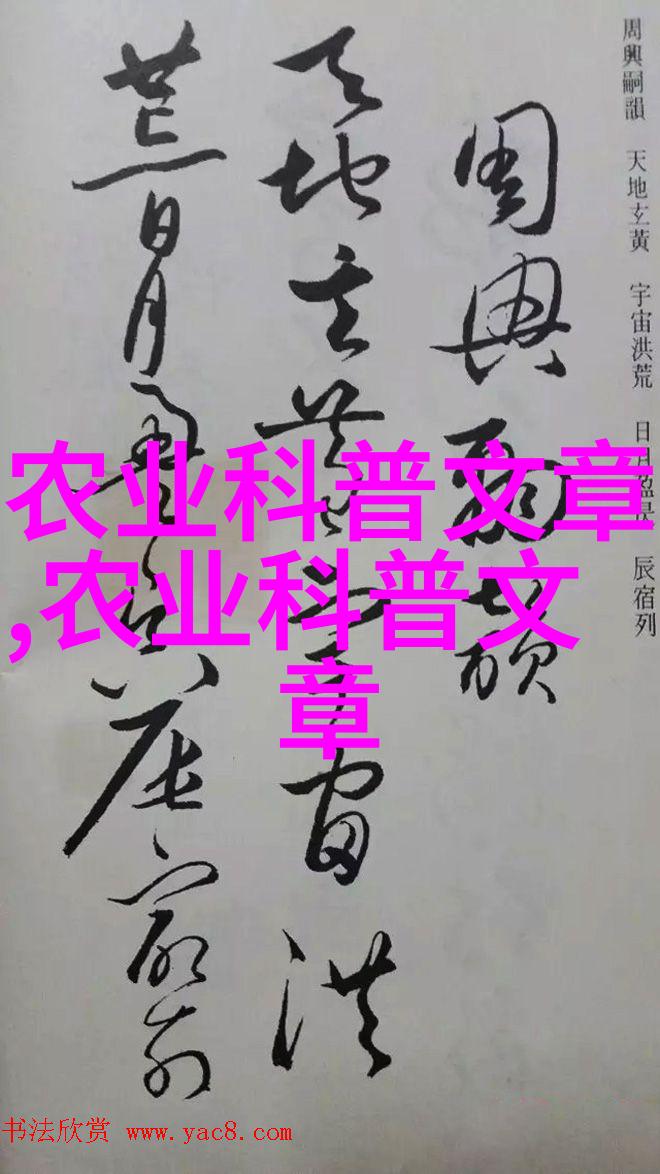 周興嗣韻　天地玄黃　宇宙洪荒　日月盈昃　辰宿列
周興嗣韻
天地玄黃宇宙洪
荒日月盈昃辰宿列
农业科普文章
,农业科普文
章
书法欣赏 www.yac8.com